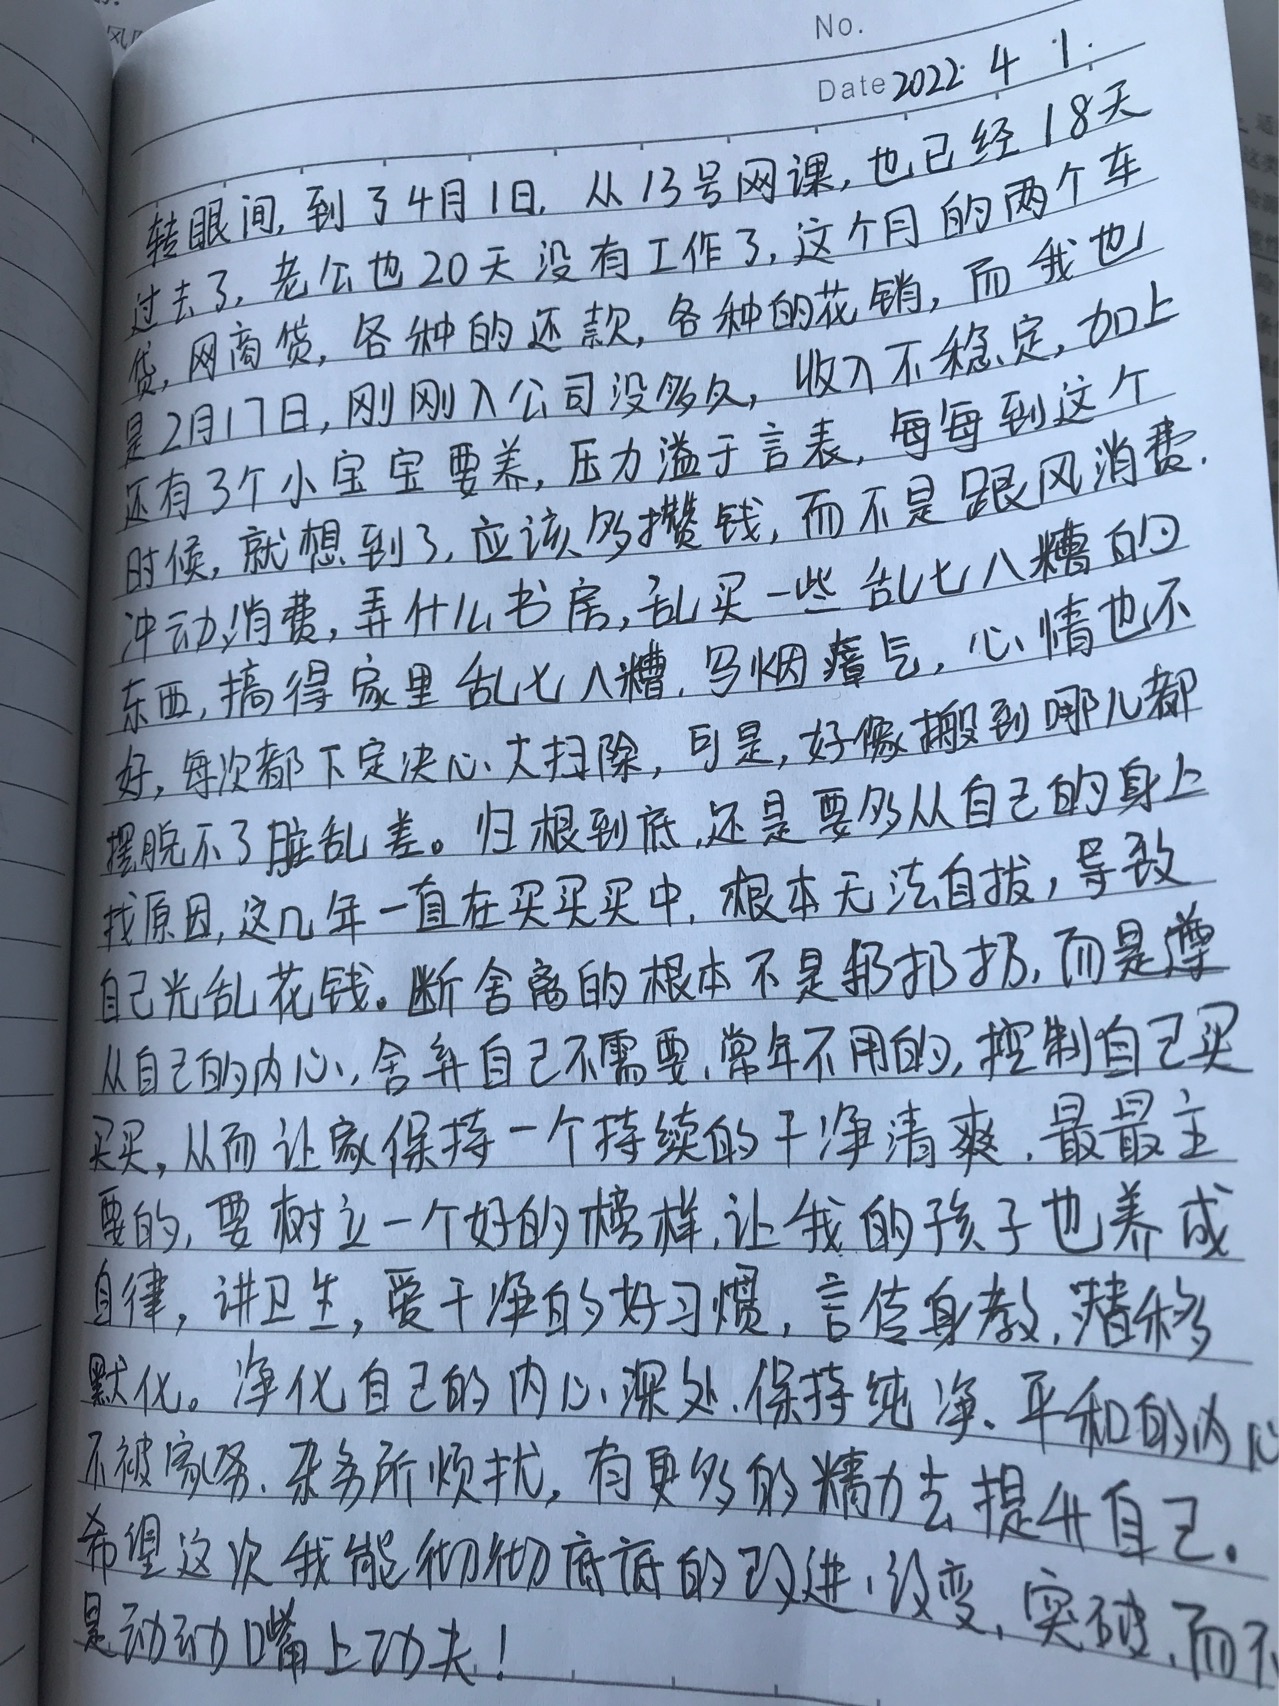 No.
Date 2022. 4. 1.
转眼间,到了4月1日,从13号网课,也已经18天
过去了,老公也20天没有工作了,这个月的两个车
贷,网商贷,各种的还款,各种的花销,而我也
是2月17日,刚刚入公司没多久,收入不稳定,加上
还有3个小宝宝要养,压力溢于言表,每每到这个
时候,就想到了,应该多攒钱,而不是跟风消费.
冲动消费,弄什么书房,乱买一些乱七八糟的
东西,搞得家里乱七八糟,乌烟瘴气,心情也不
好,每次都下定决心大扫除,可是,好像搬到哪儿都
摆脱不了脏乱差。归根到底,还是要多从自己的身上
找原因,这几年一直在买买买中,根本无法自拔,导致
自己光乱花钱。断舍离的根本不是扔扔扔,而是遵
从自己的内心,舍弃自己不需要、常年不用的,控制自己买
买买,从而让家保持一个持续的干净清爽、最最主
要的,要树立一个好的榜样,让我的孩子也养成
自律,讲卫生,爱干净的好习惯,言传身教,潜移
默化。净化自己的内心深处、保持纯净、平和的内心
不被家务、杂务所烦扰,有更多的精力去提升自己。
希望这次我能彻彻底底的改进、改变、突破、而不
是动动嘴上功夫!